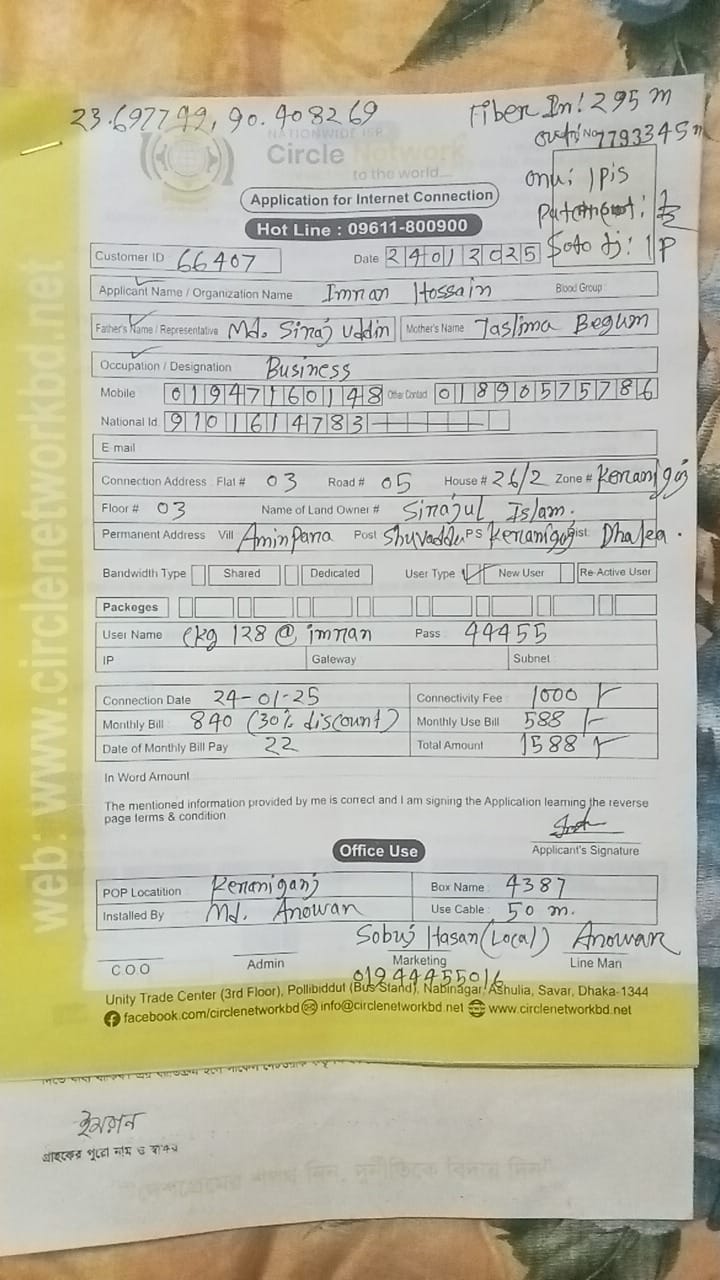 23.697799, 90.408269
Fiber In: 295 m
Out: No 7793345 m
NATIONWIDE ISP
Circle Network
to the world...
onu: 1 Pis
1P
Application for Internet Connection
Hot Line : 09611-800900
Customer ID 66407 Date 24012025
Applicant Name / Organization Name Imran Hossain Blood Group
Father's Name / Representative Md. Siraj Uddin Mother's Name Taslima Begum
Occupation / Designation Business
Mobile 01947160148 Other Contact 01890575786
National Id 9101614783
E-mail
Connection Address Flat # 03 Road # 05 House # 26/2 Zone # Keranigoj
Floor # 03 Name of Land Owner # Sirajul Islam.
Permanent Address Vill Aminpara Post Shuvadda PS Keranigoj Dist. Dhaka.
Bandwidth Type Shared Dedicated User Type New User Re-Active User
Packeges
User Name ckg 128 @ imran Pass 44455
IP Gateway Subnet
Connection Date 24-01-25 Connectivity Fee 1000/-
Monthly Bill 840 (30% discount) Monthly Use Bill 588/-
Date of Monthly Bill Pay 22 Total Amount 1588/-
In Word Amount
The mentioned information provided by me is correct and I am signing the Application learning the reverse
page terms & condition
Applicant's Signature
Office Use
POP Locatition Keraniganj Box Name 4387
Installed By Md. Anowar Use Cable 50 m.
Sobuj Hasan (Local) Anowar
C.O.O Admin Marketing Line Man
01944455016
Unity Trade Center (3rd Floor), Pollibiddut (Bus Stand), Nabinagar, Ashulia, Savar, Dhaka-1344
facebook.com/circlenetworkbd info@circlenetworkbd.net www.circlenetworkbd.net
web: www.circlenetworkbd.net
ইমরান
গ্রাহকের পুরো নাম ও স্বাক্ষর